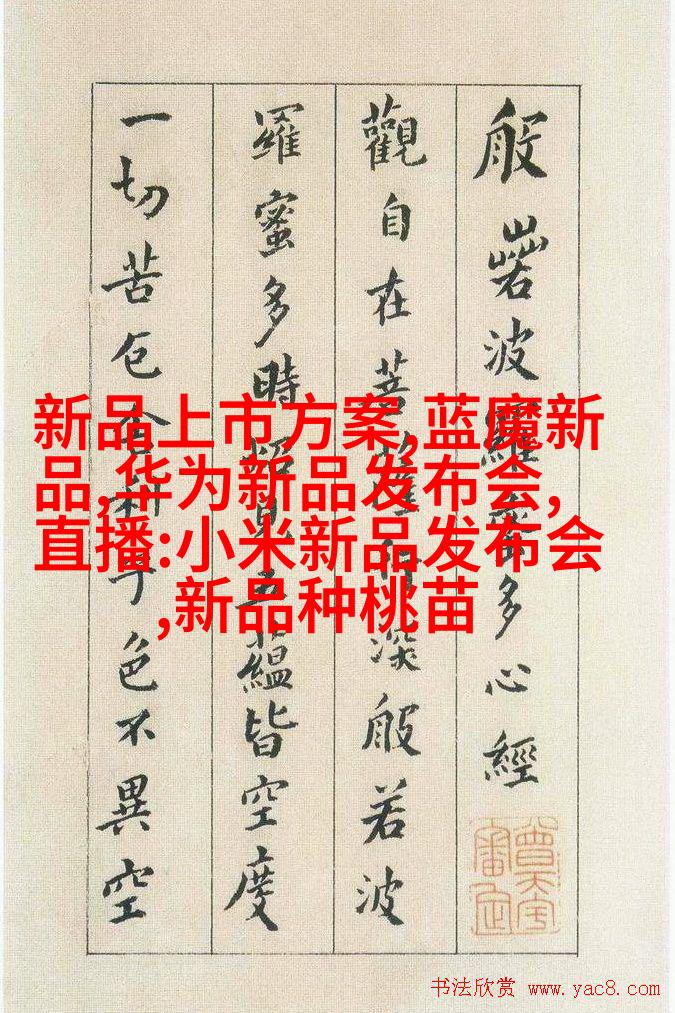 般若波羅蜜多心經
觀自在菩薩行深般若波
羅蜜多時照見五蘊皆空度
一切苦厄舍利子色不異空
新品上市方案,蓝魔新
品,华为新品发布会,
直播:小米新品发布会
,新品种桃苗
书法欣赏 www.yac8.com